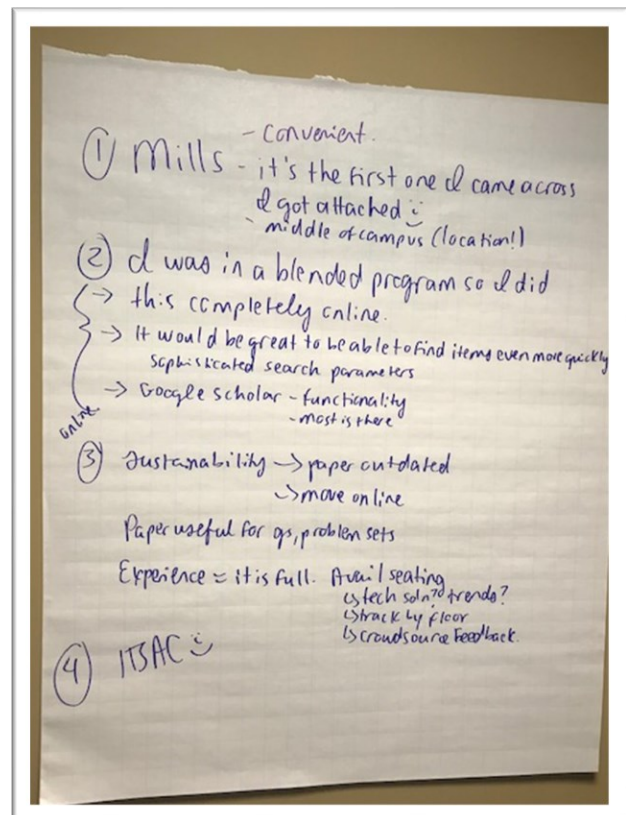 - Convenient.
① Mills - it's the first one I came across
I got attached :)
- middle of campus (location!)
② I was in a blended program so I did
→ this completely online.
→ It would be great to be able to find items even more quickly
sophisticated search parameters
→ Google scholar - functionality
- most is there
online
③ Sustainability → paper outdated
↳ move online
Paper useful for qs, problem sets
Experience = it is full. Avail seating
↳ tech soln? trends?
↳ track by floor
↳ crowdsource feedback.
④ ITSAC :)